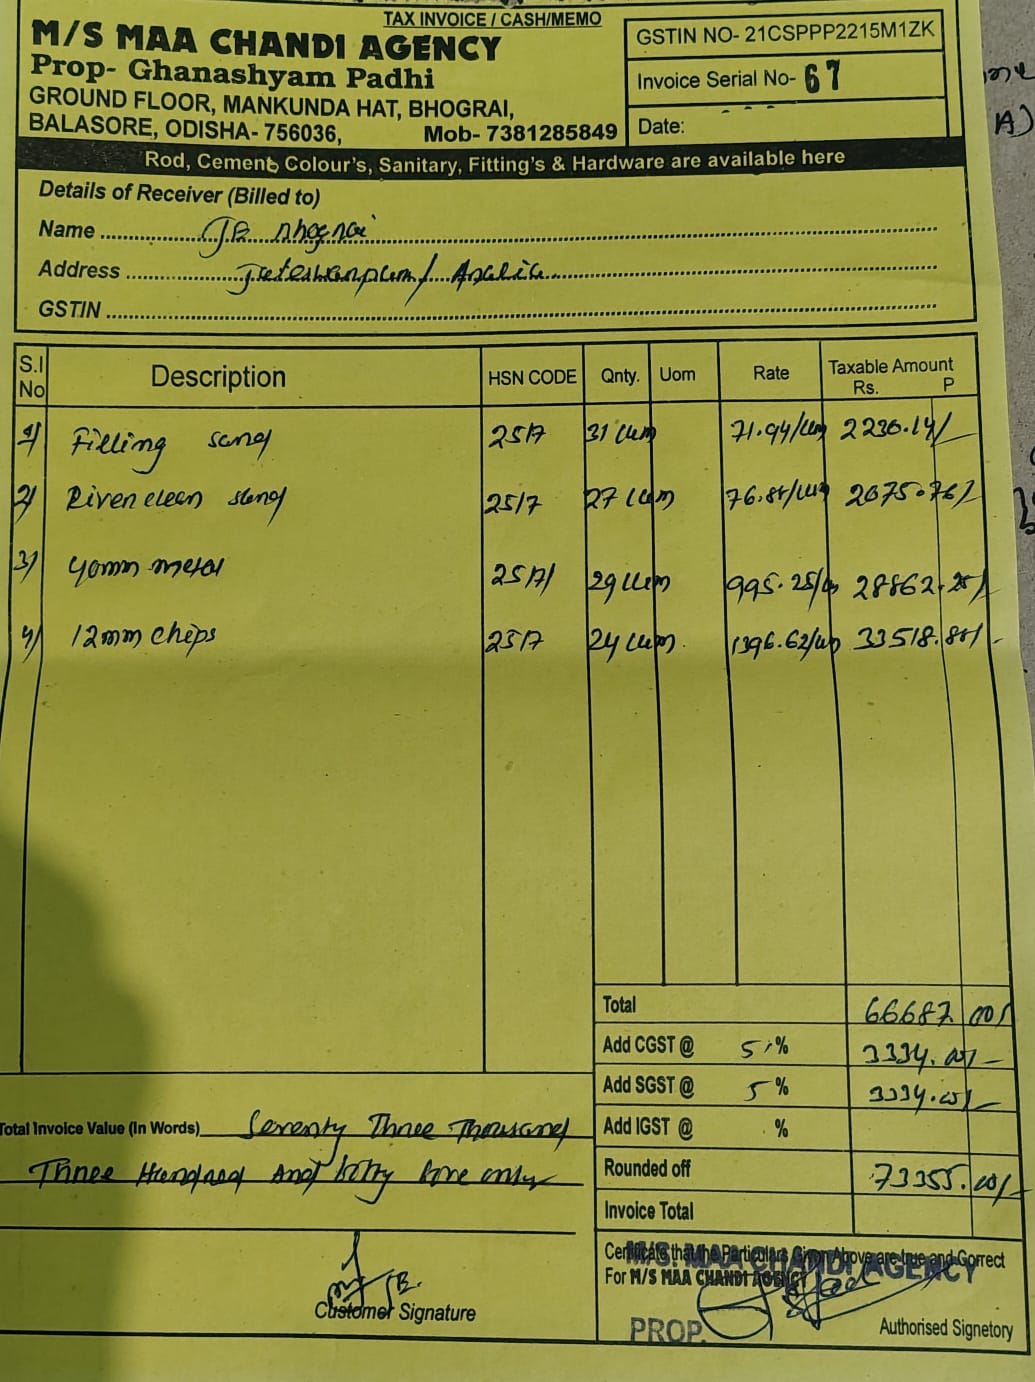 TAX INVOICE / CASH/MEMO
M/S MAA CHANDI AGENCY
Prop- Ghanashyam Padhi
GROUND FLOOR, MANKUNDA HAT, BHOGRAI,
BALASORE, ODISHA- 756036, Mob- 7381285849
GSTIN NO- 21CSPPP2215M1ZK
Invoice Serial No- 67
Date:
Rod, Cement, Colour's, Sanitary, Fitting's & Hardware are available here
Details of Receiver (Billed to)
Name
Address
GSTIN
S.l No Description HSN CODE Qnty. Uom Rate Taxable Amount Rs. P
1/ Filling sand 2517 31 cum 71.94/cum 2230.14/
2/ River clean sand 2517 27 cum 76.88/cum 2075.76/
3/ 40mm metal 2517/ 29 cum 995.25/cum 28862.25/-
4/ 12mm chips 2517 24 cum 1396.62/cum 33518.88/-
Total 66687.00/
Add CGST @ 5% 3334.00/-
Add SGST @ 5% 3334.00/-
Add IGST @ %
Rounded off 73355.00/-
Invoice Total
Total Invoice Value (In Words) Seventy Three Thousand
Three Hundred And fifty five only
Certificate that the Particulars Given Above are true and Correct
M/S. MAA CHANDI AGENCY
For M/S MAA CHANDI AGENCY
Customer Signature
PROP.
Authorised Signetory